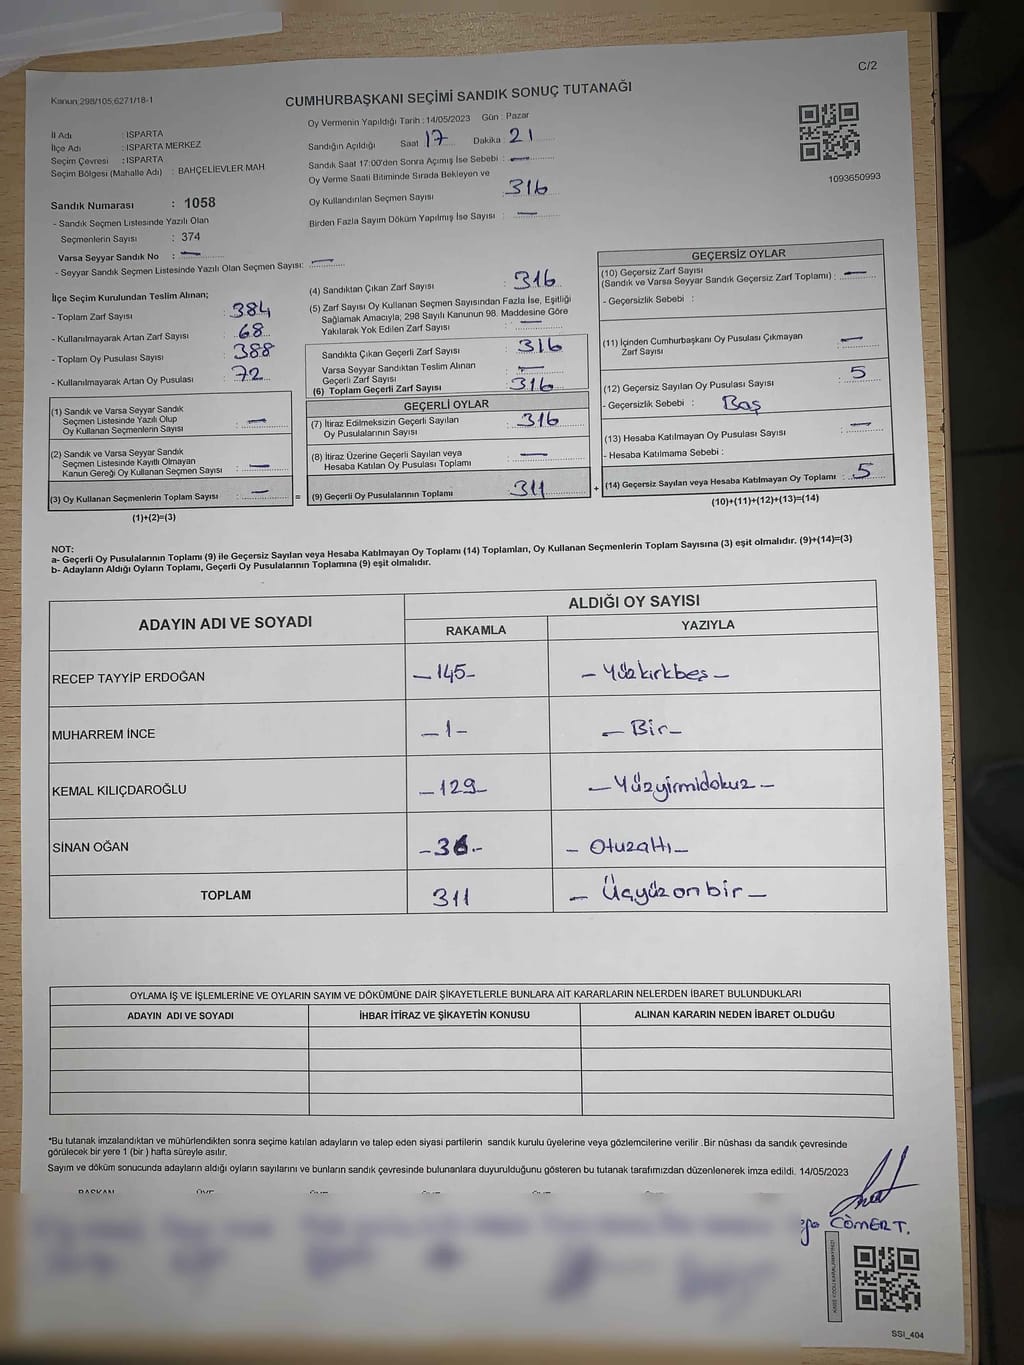 C/2
Kanun:298/105;6271/18-1
CUMHURBAŞKANI SEÇİMİ SANDIK SONUÇ TUTANAĞI
İl Adı : ISPARTA
İlçe Adı : ISPARTA MERKEZ
Seçim Çevresi : ISPARTA
Seçim Bölgesi (Mahalle Adı) : BAHÇELİEVLER MAH
Sandık Numarası : 1058
- Sandık Seçmen Listesinde Yazılı Olan
Seçmenlerin Sayısı : 374
Varsa Seyyar Sandık No : —
- Seyyar Sandık Seçmen Listesinde Yazılı Olan Seçmen Sayısı: —
Oy Vermenin Yapıldığı Tarih : 14/05/2023 Gün : Pazar
Sandığın Açıldığı Saat 17 Dakika 21
Sandık Saat 17:00'den Sonra Açılmış İse Sebebi : —
Oy Verme Saati Bitiminde Sırada Bekleyen ve
Oy Kullandırılan Seçmen Sayısı : 316
Birden Fazla Sayım Döküm Yapılmış İse Sayısı : —
1093650993
İlçe Seçim Kurulundan Teslim Alınan;
- Toplam Zarf Sayısı : 384
- Kullanılmayarak Artan Zarf Sayısı : 68
- Toplam Oy Pusulası Sayısı : 388
- Kullanılmayarak Artan Oy Pusulası : 72
(1) Sandık ve Varsa Seyyar Sandık
Seçmen Listesinde Yazılı Olup
Oy Kullanan Seçmenlerin Sayısı : —
(2) Sandık ve Varsa Seyyar Sandık
Seçmen Listesinde Kayıtlı Olmayan
Kanun Gereği Oy Kullanan Seçmen Sayısı : —
(3) Oy Kullanan Seçmenlerin Toplam Sayısı : — =
(1)+(2)=(3)
(4) Sandıktan Çıkan Zarf Sayısı : 316
(5) Zarf Sayısı Oy Kullanan Seçmen Sayısından Fazla İse, Eşitliği
Sağlamak Amacıyla; 298 Sayılı Kanunun 98. Maddesine Göre
Yakılarak Yok Edilen Zarf Sayısı : —
Sandıkta Çıkan Geçerli Zarf Sayısı : 316
Varsa Seyyar Sandıktan Teslim Alınan
Geçerli Zarf Sayısı : —
(6) Toplam Geçerli Zarf Sayısı : 316
GEÇERLİ OYLAR
(7) İtiraz Edilmeksizin Geçerli Sayılan
Oy Pusulalarının Sayısı : 316
(8) İtiraz Üzerine Geçerli Sayılan veya
Hesaba Katılan Oy Pusulası Toplamı : —
(9) Geçerli Oy Pusulalarının Toplamı : 311 +
GEÇERSİZ OYLAR
(10) Geçersiz Zarf Sayısı
(Sandık ve Varsa Seyyar Sandık Geçersiz Zarf Toplamı) : —
- Geçersizlik Sebebi :
(11) İçinden Cumhurbaşkanı Oy Pusulası Çıkmayan
Zarf Sayısı : —
(12) Geçersiz Sayılan Oy Pusulası Sayısı : 5
- Geçersizlik Sebebi : Boş
(13) Hesaba Katılmayan Oy Pusulası Sayısı : —
- Hesaba Katılmama Sebebi :
(14) Geçersiz Sayılan veya Hesaba Katılmayan Oy Toplamı : 5
(10)+(11)+(12)+(13)=(14)
NOT:
a- Geçerli Oy Pusulalarının Toplamı (9) ile Geçersiz Sayılan veya Hesaba Katılmayan Oy Toplamı (14) Toplamları, Oy Kullanan Seçmenlerin Toplam Sayısına (3) eşit olmalıdır. (9)+(14)=(3)
b- Adayların Aldığı Oyların Toplamı, Geçerli Oy Pusulalarının Toplamına (9) eşit olmalıdır.
ADAYIN ADI VE SOYADI
ALDIĞI OY SAYISI
RAKAMLA YAZIYLA
RECEP TAYYİP ERDOĞAN -145- -Yüzkırkbeş-
MUHARREM İNCE -1- -Bir-
KEMAL KILIÇDAROĞLU -129- -Yüzyirmidokuz-
SİNAN OĞAN -36- -Otuzaltı-
TOPLAM 311 -Üçyüzonbir-
OYLAMA İŞ VE İŞLEMLERİNE VE OYLARIN SAYIM VE DÖKÜMÜNE DAİR ŞİKAYETLERLE BUNLARA AİT KARARLARIN NELERDEN İBARET BULUNDUKLARI
ADAYIN ADI VE SOYADI İHBAR İTİRAZ VE ŞİKAYETİN KONUSU ALINAN KARARIN NEDEN İBARET OLDUĞU
*Bu tutanak imzalandıktan ve mühürlendikten sonra seçime katılan adayların ve talep eden siyasi partilerin sandık kurulu üyelerine veya gözlemcilerine verilir .Bir nüshası da sandık çevresinde
görülecek bir yere 1 (bir ) hafta süreyle asılır.
Sayım ve döküm sonucunda adayların aldığı oyların sayılarını ve bunların sandık çevresinde bulunanlara duyurulduğunu gösteren bu tutanak tarafımızdan düzenlenerek imza edildi. 14/05/2023
BAŞKAN ÜYE ÜYE ÜYE ÜYE ÜYE
CÖMERT.
SSI_404